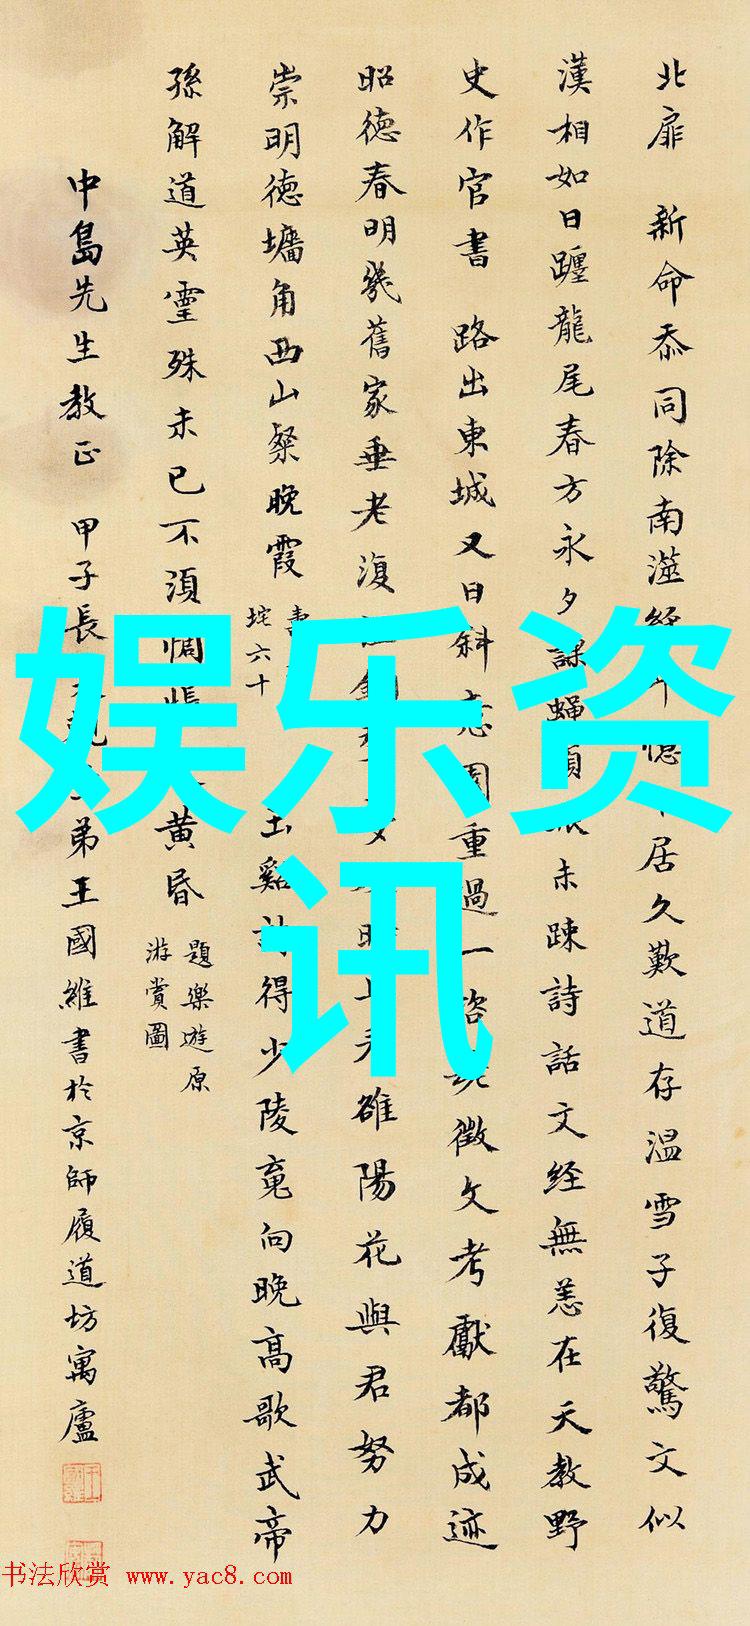 北扉 新命忝同除南澨經
居久歎道存温雪子復驚文似
漢相如日躔龍尾春方永夕課蠅頭
未疎詩話文经無恙在天教野
史作官書 路出東城又日斜
重過一
徵文考獻都成迹
昭德春明幾舊家垂老復
上元雒陽花與君努力
崇明德墉角西山粲晚霞
垞六十
玉谿
得少陵意向晚高歌武帝
孫解道英靈殊未已不須惆悵
黄昏
題樂遊原
游賞圖
中島先生教正 甲子長
弟王國維書於京師履道坊寓廬
娱乐资
讯
书法欣赏 www.yac8.com